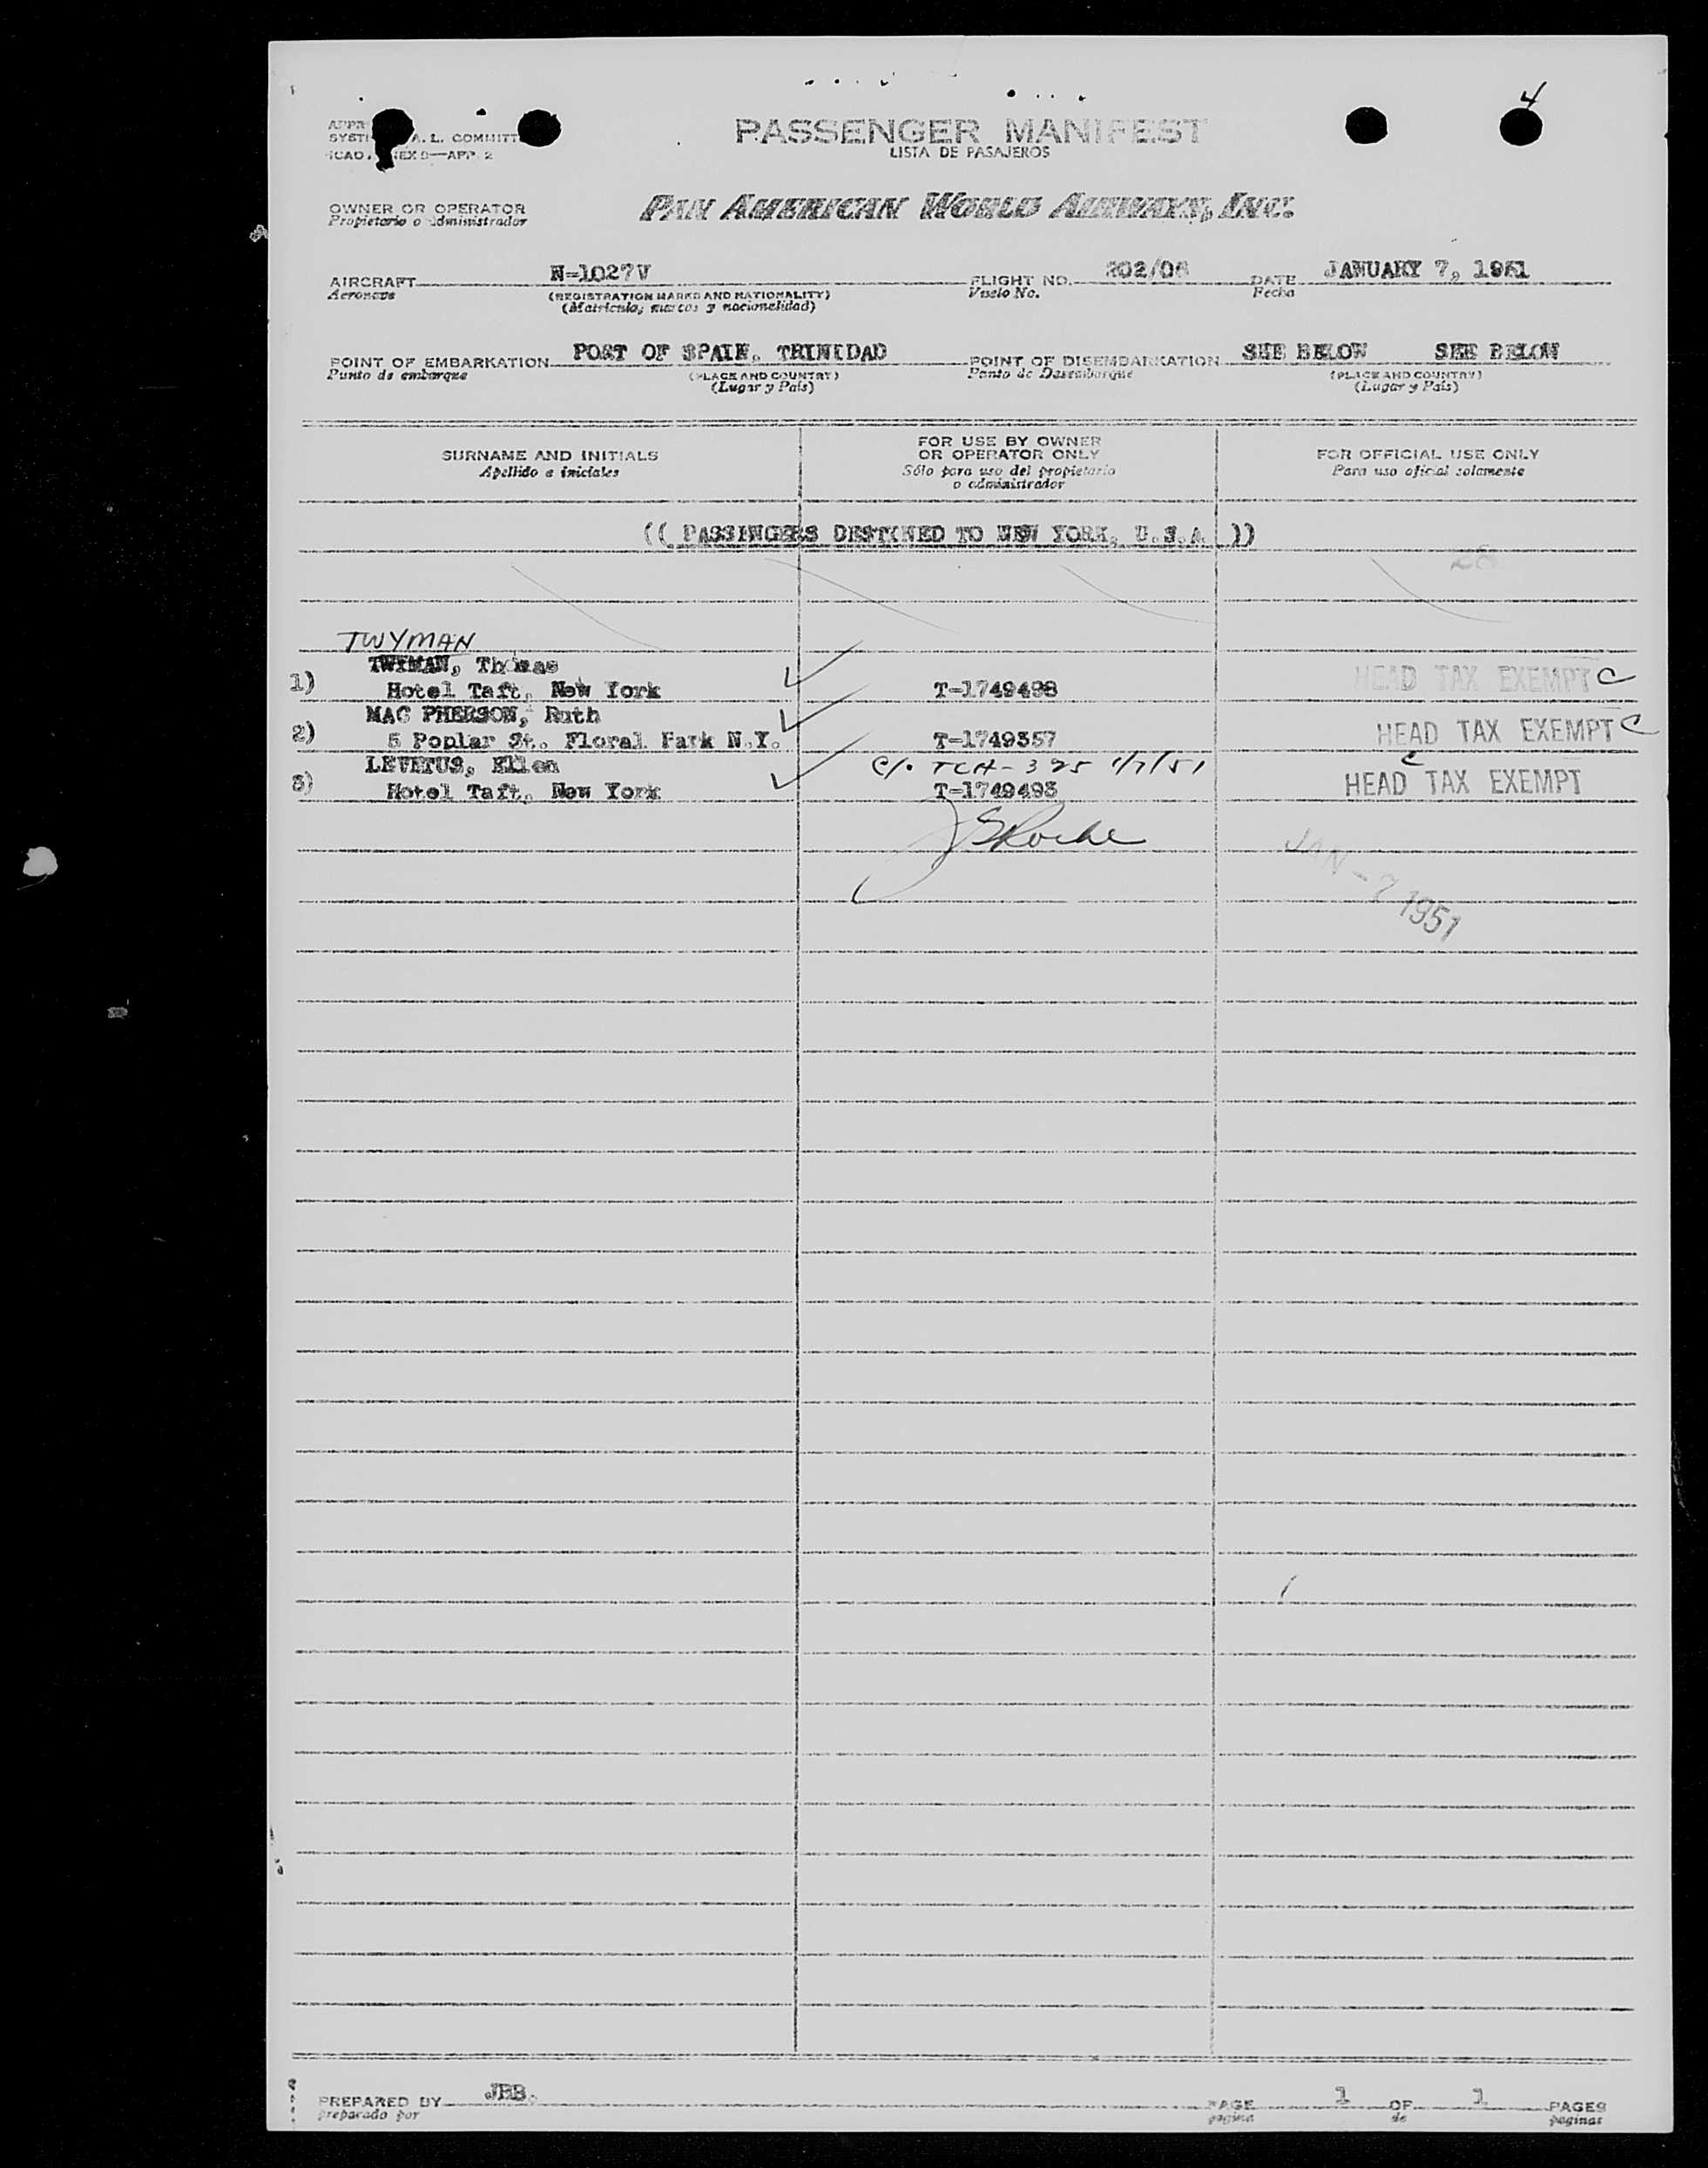 4
PASSENGER MANIFEST
A. L. COMMITT
LISTA DE PASAJEROS
APP. 2
OWNER OR OPERATOR
PAN AMERICAN WORLD AIRWAYS, INC.
Propietario o administrador
AIRCRAFT N-1027V FLIGHT NO. 202/06 DATE JANUARY 7, 1951
Aeronave (REGISTRATION MARKS AND NATIONALITY) Vuelo No. Fecha
(Matrícula, marcas y nacionalidad)
POINT OF EMBARKATION PORT OF SPAIN, TRINIDAD POINT OF DISEMBARKATION SEE BELOW SEE BELOW
Punto de embarque (PLACE AND COUNTRY) Punto de Desembarque (PLACE AND COUNTRY)
(Lugar y País) (Lugar y País)
SURNAME AND INITIALS FOR USE BY OWNER OR OPERATOR ONLY FOR OFFICIAL USE ONLY
Apellido e iniciales Sólo para uso del propietario o administrador Para uso oficial solamente
(( PASSENGERS DESTINED TO NEW YORK, U.S.A. ))
28
TWYMAN
TWYMAN, Thomas
1) Hotel Taft, New York T-1749498 HEAD TAX EXEMPT C
MAC PHERSON, Ruth
2) 5 Poplar St. Floral Park N.Y. T-1749357 HEAD TAX EXEMPT C
LEVITUS, Ellen C/o TCA-325 1/7/51 C
3) Hotel Taft, New York T-1749493 HEAD TAX EXEMPT
JAN - 7 1951
PREPARED BY PAGE 1 OF 1 PAGES
preparado por página de páginas